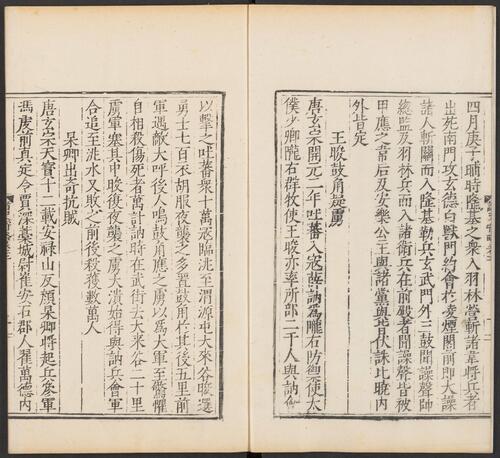 四月庚子晡時隆基之衆入羽林營斬諸韋將兵者
出死南門攻玄德白獸門約會於凌煙閣前即大譟
諸人斬關而入隆基勒兵玄武門外三鼓聞譟聲帥
總監及羽林兵而入諸衛兵在前殿者聞譟聲皆被
甲應之韋后及安樂公主與諸黨與皆伏誅比曉內
外皆定
王晙鼓角疑虜
唐玄宗開元二年吐蕃入寇薛訥爲隴右防禦使太
僕少卿隴右群牧使王晙亦率所部二千人與訥
以擊之吐蕃衆十萬寇臨洮至渭源屯大來谷晙選
勇士七百衣胡服夜襲之多置鼓角於其後五里前
軍遇敵大呼後人鳴鼓角應之虜以爲大軍至驚懼
自相殺傷死者萬計訥時在武街去大來谷二十里
虜軍塞其中晙復夜襲之虜大潰始得與訥兵會軍
合追至洮水又敗之前後殺獲數萬人
杲卿出奇抗賊
唐玄宗天寶十二載安祿山反顏杲卿將起兵參軍
馮虔前真定令賈深藁城尉崔安石郡人翟萬德內